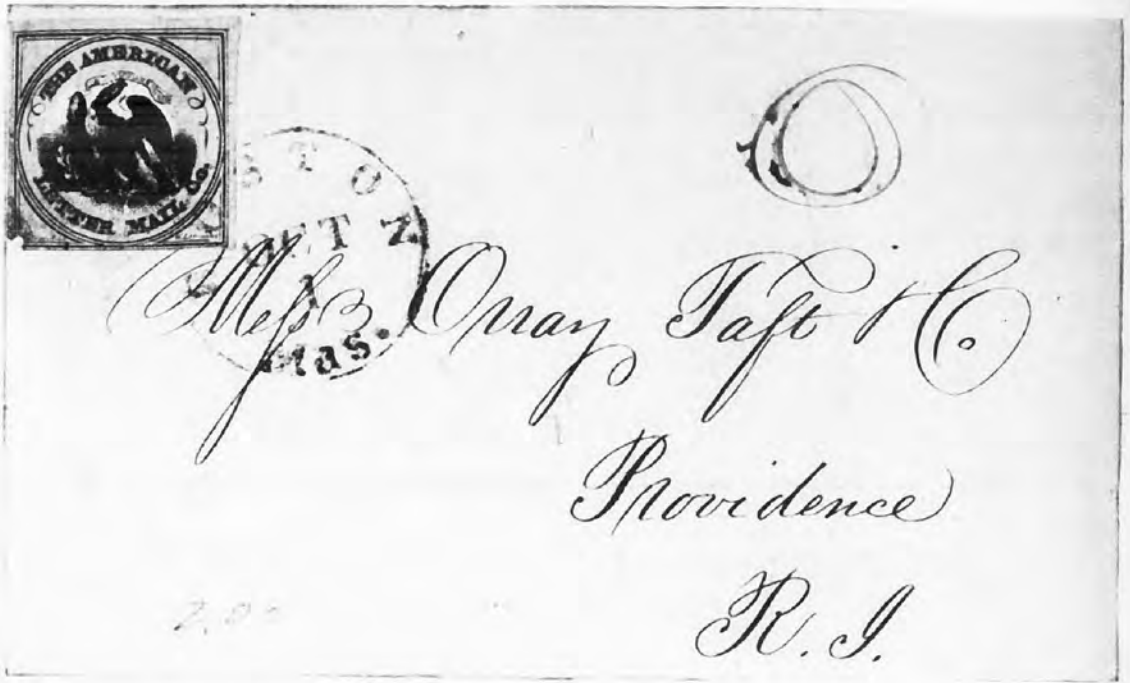 THE AMERICAN
LETTER MAIL Co.
STON
Mas.
Mess Orray Taft & Co
Providence
R. I.